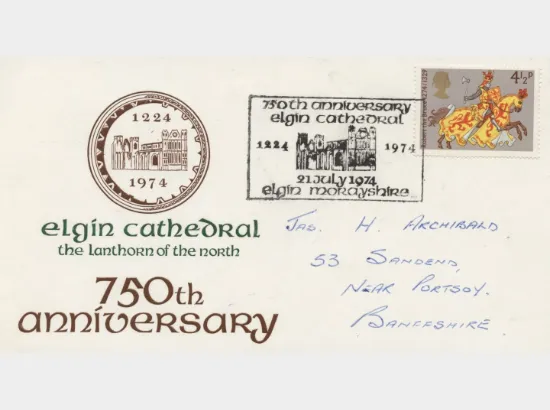 1224
1974
elgin cathedral
the lanthorn of the north
750th
anniversary
750th anniversary
elgin cathedral
1224 1974
21 July 1974
elgin morayshire
4½P
Robert the Bruce 1274/1329
Jas. H. Archibald.
53 Sandend,
Near Portsoy.
Banffshire.